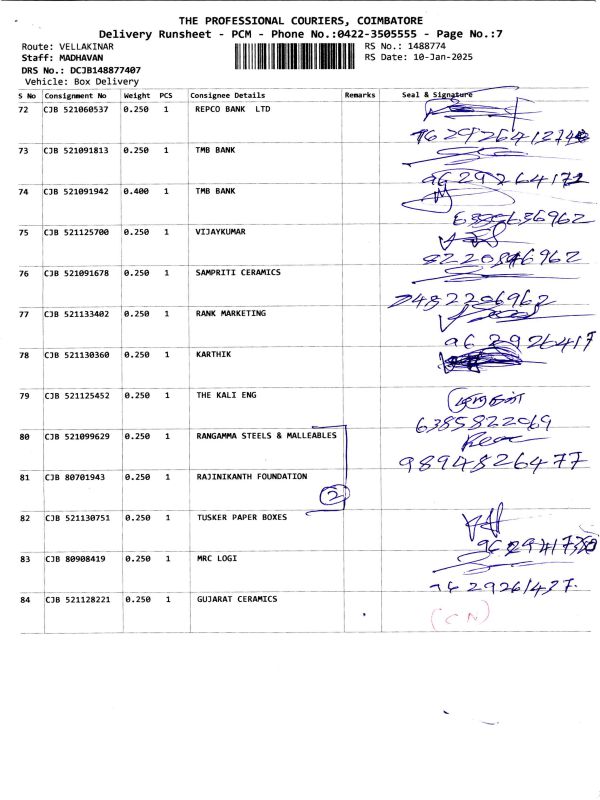 THE PROFESSIONAL COURIERS, COIMBATORE
Delivery Runsheet - PCM - Phone No.:0422-3505555 - Page No.:7
Route: VELLAKINAR RS No.: 1488774
Staff: MADHAVAN RS Date: 10-Jan-2025
DRS No.: DCJB148877407
Vehicle: Box Delivery
S No Consignment No Weight PCS Consignee Details Remarks Seal & Signature
72 CJB 521060537 0.250 1 REPCO BANK LTD
73 CJB 521091813 0.250 1 TMB BANK
74 CJB 521091942 0.400 1 TMB BANK
75 CJB 521125700 0.250 1 VIJAYKUMAR
76 CJB 521091678 0.250 1 SAMPRITI CERAMICS
7482206962
77 CJB 521133402 0.250 1 RANK MARKETING
78 CJB 521130360 0.250 1 KARTHIK
79 CJB 521125452 0.250 1 THE KALI ENG
6385822069
80 CJB 521099629 0.250 1 RANGAMMA STEELS & MALLEABLES
9894826477
81 CJB 80701943 0.250 1 RAJINIKANTH FOUNDATION
2
82 CJB 521130751 0.250 1 TUSKER PAPER BOXES
83 CJB 80908419 0.250 1 MRC LOGI
84 CJB 521128221 0.250 1 GUJARAT CERAMICS
(CN)